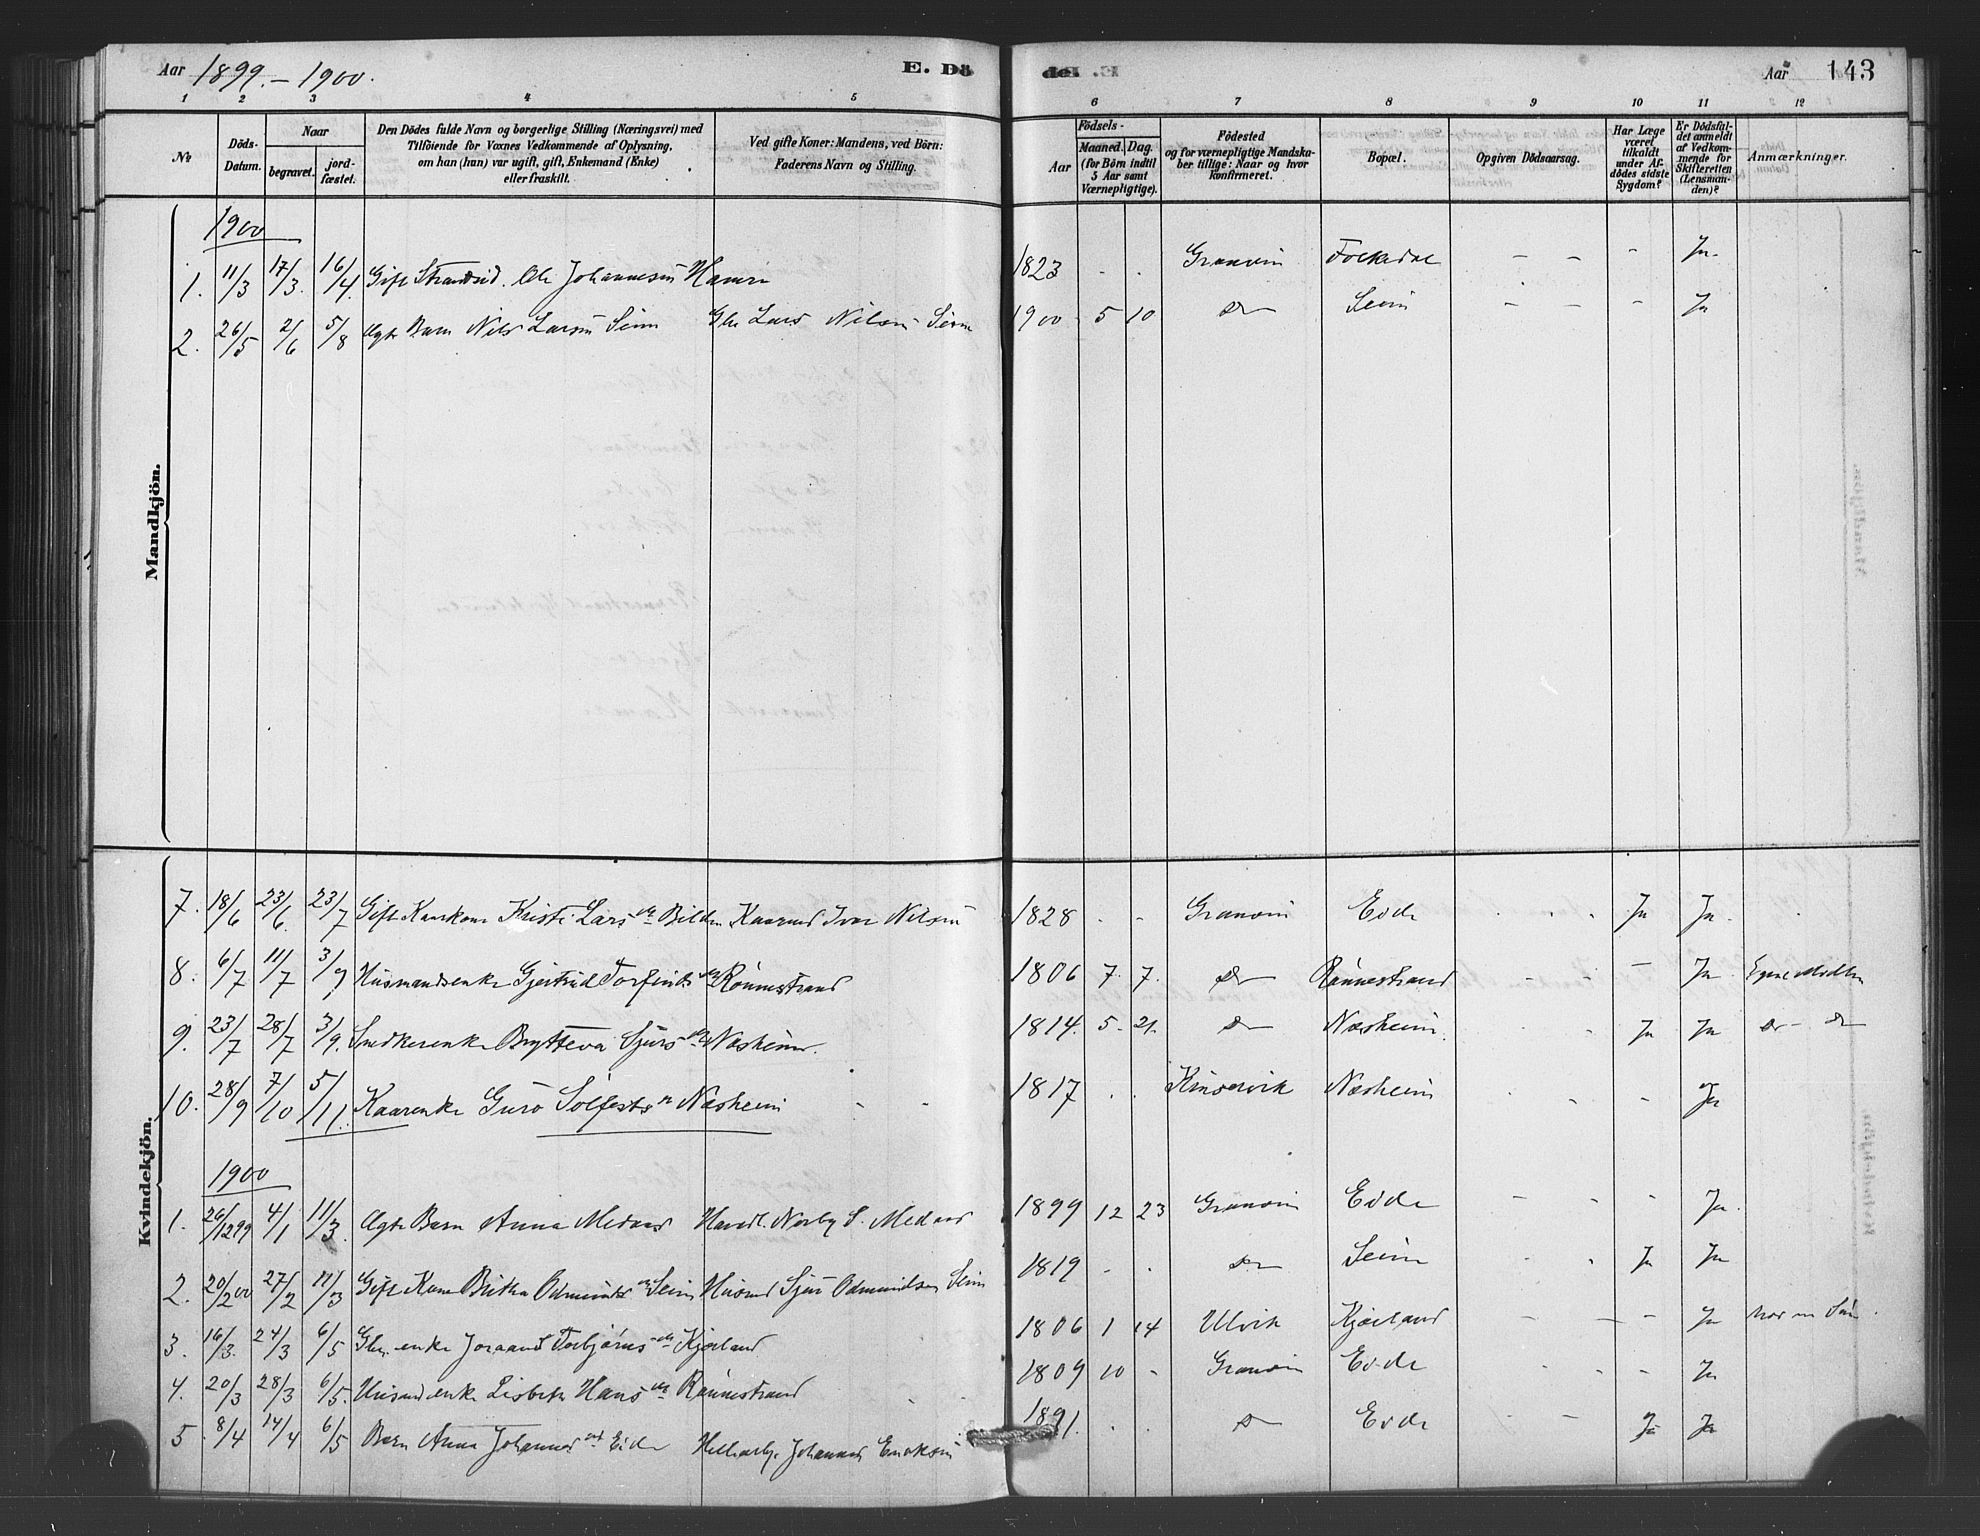 Aar 1899 – 1900. E. Dö
Aar 143
1 2 3 4 5 6 7 8 9 10 11 12
No
Döds-Datum.
Naar
begravet.
jord-fæstet.
Den Dödes fulde Navn og borgerlige Stilling (Næringsvei) med
Tilföiende for Voxnes Vedkommende af Oplysning,
om han (hun) var ugift, gift, Enkemand (Enke)
eller fraskilt.
Ved gifte Koner: Mandens, ved Börn:
Faderens Navn og Stilling.
Födsels-
Aar
Maaned. Dag.
(for Börn indtil
5 Aar samt
Værnepligtige).
Födested
og for værnepligtige Mandska-
ber tillige: Naar og hvor
konfirmeret.
Bopæl.
Opgiven Dödsaarsag.
Har Læge
været
tilkaldt
under Af-
dödes sidste
Sygdom?
Er Dödsfal-
det anmeldt
af Vedkom-
mende for
Skifteretten
(Lensman-
den)?
Anmærkninger.
Mandkjön.
1900
1. 11/3 17/3. 16/4. Gift Strandsid. Ole Johannesen Hamre 1823 - - Granvin Folkedal - - - Ja.
2. 26/5 2/6 5/8 Ægte Barn Nils Larsen Seim Gbr Lars Nilsen Seim 1900 5 10 Do Seim - - - Ja
Kvindekjön.
7. 18/6 23/6. 23/7 Gift Kaarkone Kristi Larsdr Bilden Kaarmd Ivar Nilsen 1828 - - Granvin Eide - - - Ja Ja.
8. 6/7 11/7 3/9 Husmandsenke Gjertrud Torfindsdr Rönnestrand 1806 7. 7. Do Rönnestrand - - - Ja
9. 23/7 28/7 3/9. Snedkerenke Brytteva Sjursdr Næsheim. 1814. 5. 21. Do Næsheim. - - Ja Ja Do - Do
10. 28/9 7/10 5/11. Kaarenke Guro Solfestsdr Næsheim - - 1817 . . Kinservik Næsheim - - - Ja
1900
1. 26/12 99 4/1 11/3. Ægte Barn Anna Medaas Handl. Nerby S. Medaas 1899 12 23 Granvin Eide - - - Ja.
2. 20/2 00 27/2 11/3 Gift Kone Britha Odmundsdr Seim Husmd Sjur Odmundsen Seim 1819 - - Do Seim - - Ja Ja
3. 16/3. 24/3 6/5 Gbr. enke Joraand Torbjörnsdr Kjærland 1806 1 14 Ulvik Kjærland - - - Ja
4. 20/3 28/3 6/5. Husmd enke Lisbet Hansdr Rönnestrand 1809 10 - Granvin Eide - - - Ja
5. 8/4 14/4 6/5 Barn Anna Johannesdr Eide Johannes Eriksen 1891. . . Do Eide - - Ja Ja